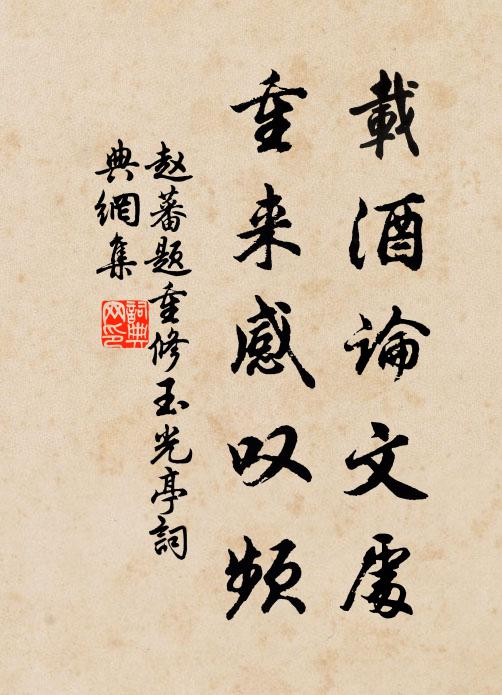 載酒論文處
重来感叹頻
赵蕃題重修玉光亭詞
典網集
詞典网印